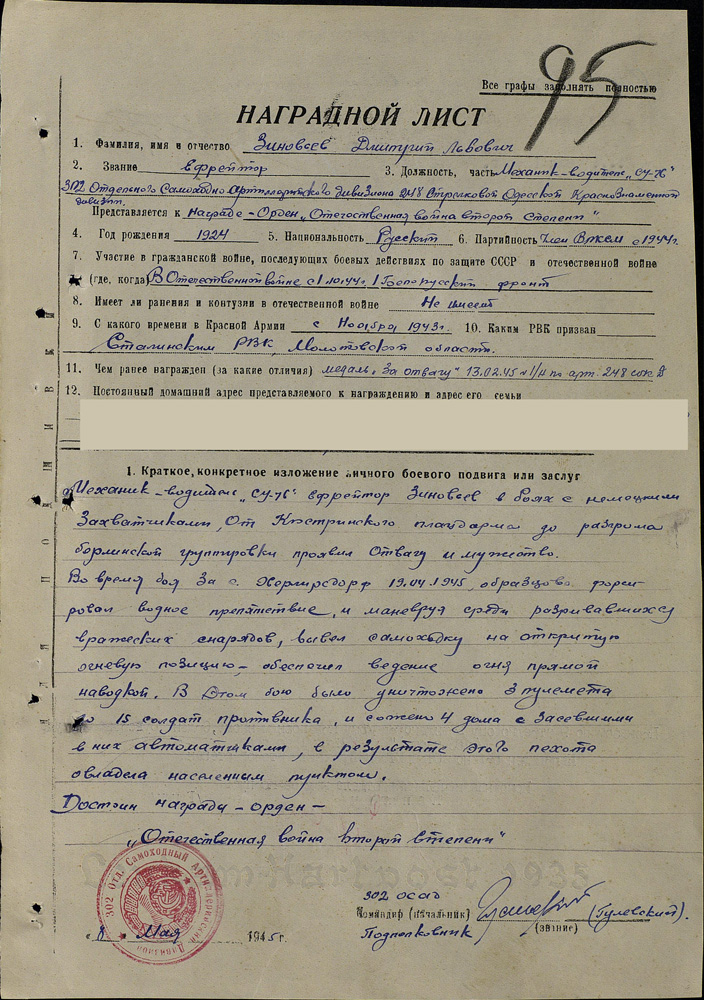 95
Все графы заполнять полностью
НАГРАДНОЙ ЛИСТ
1. Фамилия, имя и отчество Зиновьев Дмитрий Львович
2. Звание ефрейтор 3. Должность, часть Механик-водитель „СУ-76"
302 Отдельного Самоходно Артиллерийского дивизиона 248 Стрелковой Одесской Краснознаменной
дивизии.
Представляется к награде - Орден „Отечественная война второй степени"
4. Год рождения 1924 5. Национальность Русский 6. Партийность Член ВЛКСМ с 1944г.
7. Участие в гражданской войне, последующих боевых действиях по защите СССР и отечественной войне
(где, когда) В Отечественной войне с 1.10.44г. 1 Белорусский фронт
8. Имеет ли ранения и контузии в отечественной войне Не имеет
9. С какого времени в Красной Армии с Ноября 1943г. 10. Каким РВК призван
Сталинским РВК, Молотовской области.
11. Чем ранее награжден (за какие отличия) медаль „За отвагу" 13.02.45 арт. 248
12. Постоянный домашний адрес представляемого к награждению и адрес его семьи
1. Краткое, конкретное изложение личного боевого подвига или заслуг
Механик-водитель „СУ-76" ефрейтор Зиновьев в боях с немецкими
Захватчиками, От Кюстринского плацдарма до разгрома
берлинской группировки проявил Отвагу и мужество.
Во время боя За с. 19.04.1945, образцово форси-
ровал водное препятствие, и маневруя среди разрывавшихся
вражеских снарядов, вывел самоходку на открытую
огневую позицию - обеспечил ведение огня прямой
наводкой. В Этом бою было уничтожено 3 пулемета
до 15 солдат противника, и сожено 4 дома с Засевшими
в них автоматчиками, в результате этого пехота
овладела населенным пунктом.
Достоин награды - орден -
„Отечественная война второй степени"
302 Отд. Самоходный Артиллерийский Дивизион
302 осад
Командир (начальник) (Гулевский).
Подполковник (звание)
„8" Мая 1945г.